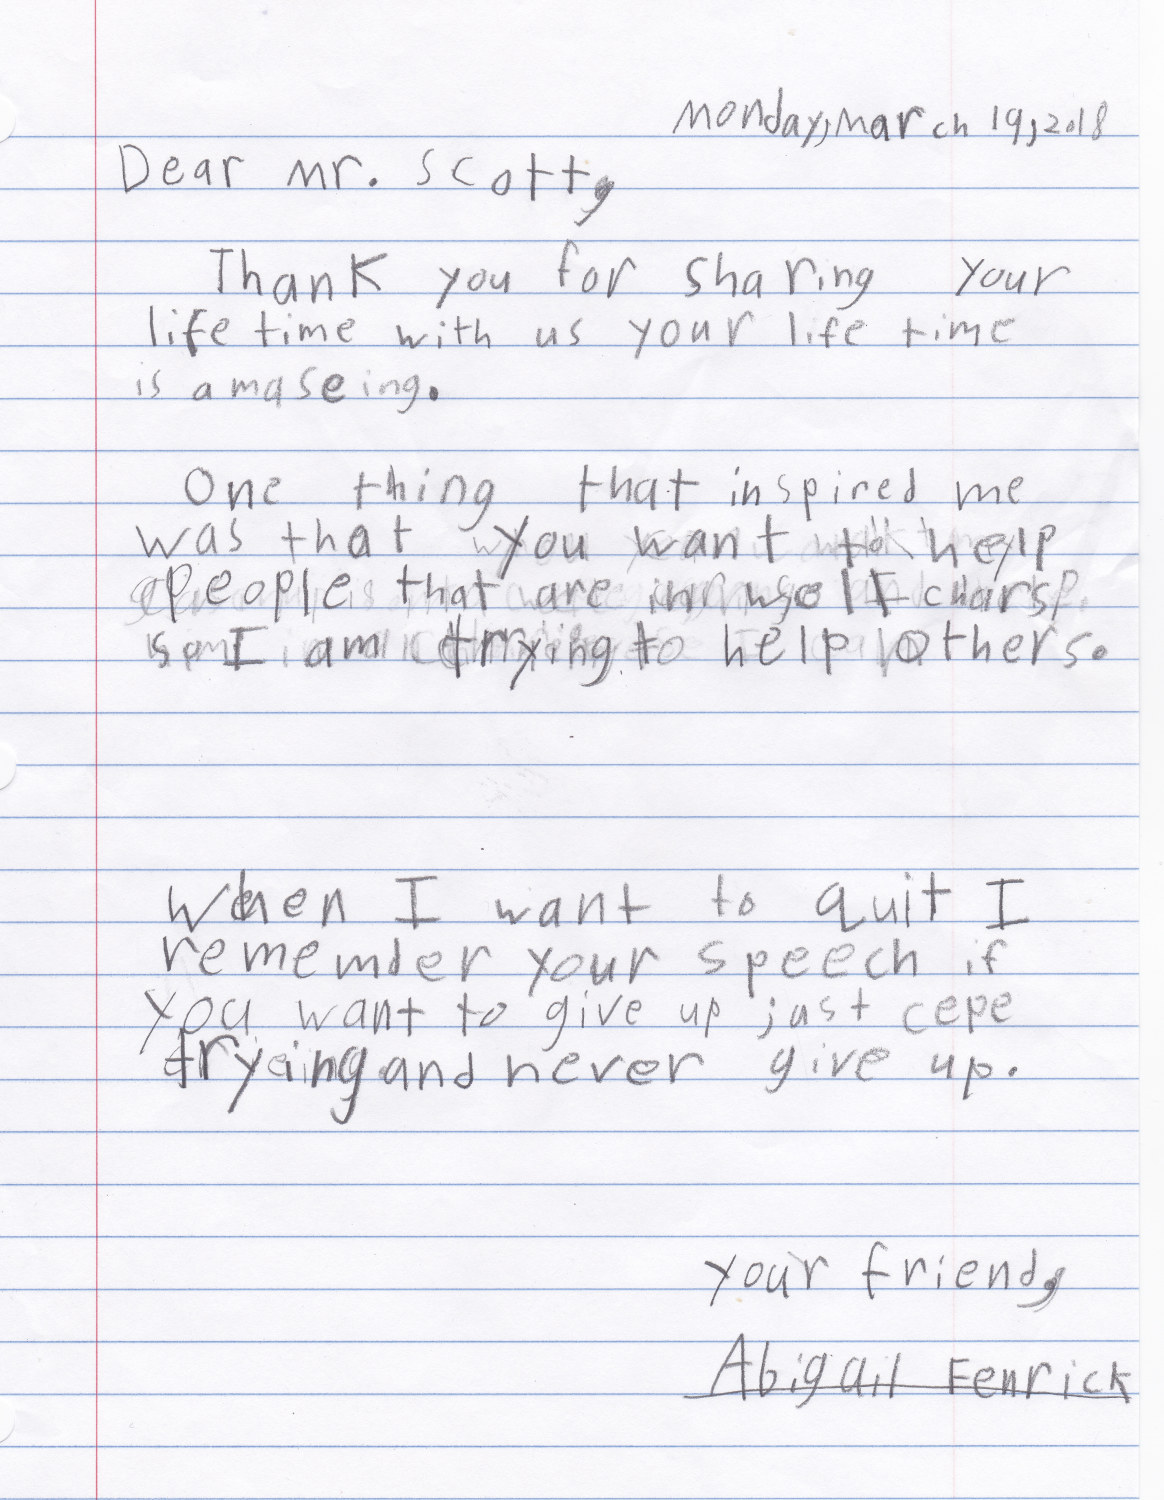 Monday, March 19, 2018
Dear Mr. Scott,
Thank you for sharing your
life time with us your life time
is amaseing.
One thing that inspired me
was that you want to help
people that are in chars
so I am trying to help others.
When I want to quit I
rememder your speech if
you want to give up just cepe
trying and never give up.
your friend,
Abigail Fenrick